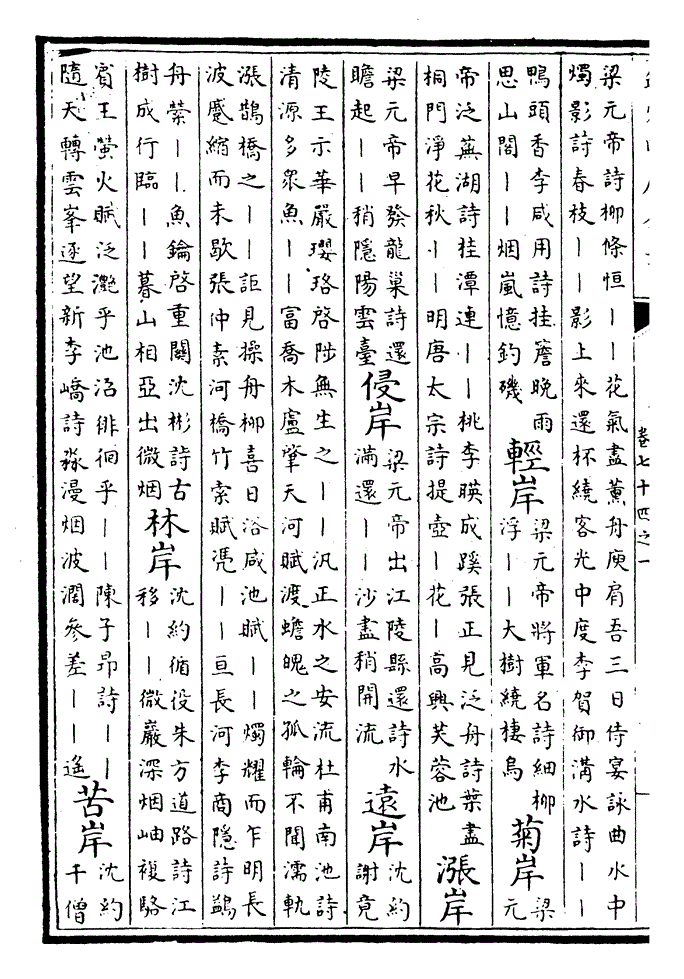 梁元帝詩柳條恒丨丨花氣盡薰舟庾肩吾三日侍宴詠曲水中
燭影詩春枝丨丨影上來還杯繞客光中度李賀御溝水詩丨丨
鴨頭香李咸用詩挂簷晚雨
思山閣丨丨烟嵐憶釣磯
輕岸
梁元帝將軍名詩細柳
浮丨丨大樹繞棲烏
菊岸
梁
元
帝泛蕪湖詩桂潭連丨丨桃李暎成蹊張正見泛舟詩葉盡
桐門淨花秋丨丨明唐太宗詩提壺丨花丨高興芙蓉池
漲岸
梁元帝早發龍巢詩還
瞻起丨丨稍隱陽雲臺
侵岸
梁元帝出江陵縣還詩水
滿還丨丨沙盡稍開流
遠岸
沈約
謝竟
陵王示華嚴瓔珞啓陟無生之丨丨汎正水之安流杜甫南池詩
清源多衆魚丨丨富喬木盧肇天河賦渡蟾魄之孤輪不聞濡軌
漲鵲橋之丨丨詎見操舟柳喜日浴咸池賦丨丨燭耀而乍明長
波蹙縮而未歇張仲素河橋竹索賦馮丨丨亘長河李商隱詩鷁
舟縈丨丨魚鑰啓重關沈彬詩古
樹成行臨丨丨暮山相亞出微烟
林岸
沈約循役朱方道路詩江
移丨丨微巖深烟岫複駱
賓王螢火賦泛灔乎池沼徘徊乎丨丨陳子昂詩丨丨
隨天轉雲峯逐望新李嶠詩淼漫烟波濶參差丨丨遙
苦岸
沈約
千僧
卷七十四之一